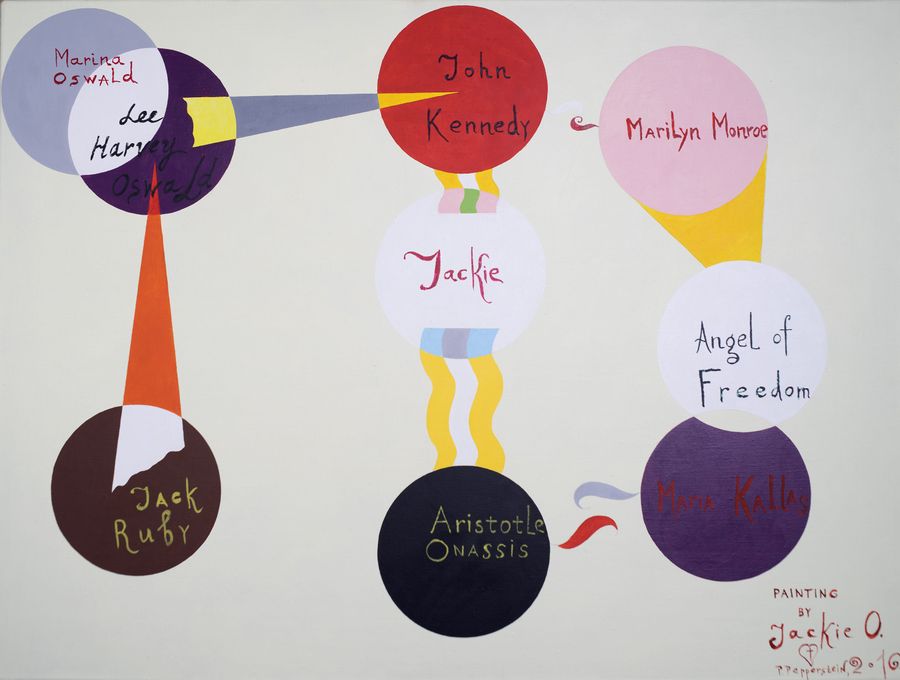 Marina
Oswald
Lee
Harvey
Oswald
John
Kennedy
Marilyn Monroe
Jackie
Angel of
Freedom
Jack
Ruby
Aristotle
Onassis
Maria Kallas
PAINTING
BY
Jackie O.
P.Pepperstein, 2016